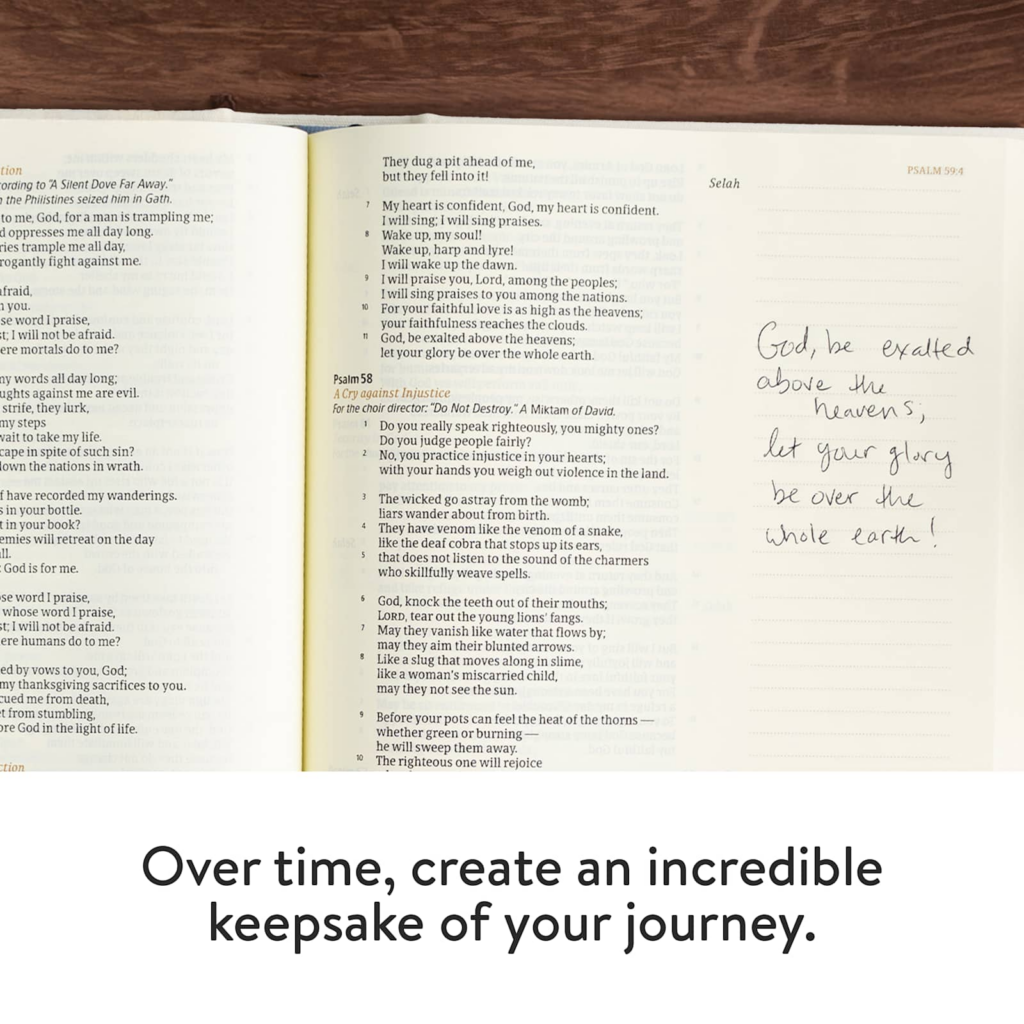 tion
ording to "A Silent Dove Far Away."
the Philistines seized him in Gath.
to me, God, for a man is trampling me;
d oppresses me all day long.
ries trample me all day,
rogantly fight against me.
afraid,
n you.
se word I praise,
st; I will not be afraid.
ere mortals do to me?
my words all day long;
ughts against me are evil.
strife, they lurk,
my steps
wait to take my life.
cape in spite of such sin?
down the nations in wrath.
f have recorded my wanderings.
s in your bottle.
t in your book?
emies will retreat on the day
all.
God is for me.
se word I praise,
whose word I praise,
st; I will not be afraid.
ere humans do to me?
ed by vows to you, God;
my thanksgiving sacrifices to you.
cued me from death,
et from stumbling,
ore God in the light of life.
ction
They dug a pit ahead of me,
but they fell into it!
Selah
7 My heart is confident, God, my heart is confident.
I will sing; I will sing praises.
8 Wake up, my soul!
Wake up, harp and lyre!
I will wake up the dawn.
9 I will praise you, Lord, among the peoples;
I will sing praises to you among the nations.
10 For your faithful love is as high as the heavens;
your faithfulness reaches the clouds.
11 God, be exalted above the heavens;
let your glory be over the whole earth.
Psalm 58
A Cry against Injustice
For the choir director: "Do Not Destroy." A Miktam of David.
1 Do you really speak righteously, you mighty ones?
Do you judge people fairly?
2 No, you practice injustice in your hearts;
with your hands you weigh out violence in the land.
3 The wicked go astray from the womb;
liars wander about from birth.
4 They have venom like the venom of a snake,
like the deaf cobra that stops up its ears,
5 that does not listen to the sound of the charmers
who skillfully weave spells.
6 God, knock the teeth out of their mouths;
LORD, tear out the young lions' fangs.
7 May they vanish like water that flows by;
may they aim their blunted arrows.
8 Like a slug that moves along in slime,
like a woman's miscarried child,
may they not see the sun.
9 Before your pots can feel the heat of the thorns —
whether green or burning —
he will sweep them away.
10 The righteous one will rejoice
PSALM 59:4
God, be exalted
above the
heavens;
let your glory
be over the
whole earth!
Over time, create an incredible
keepsake of your journey.